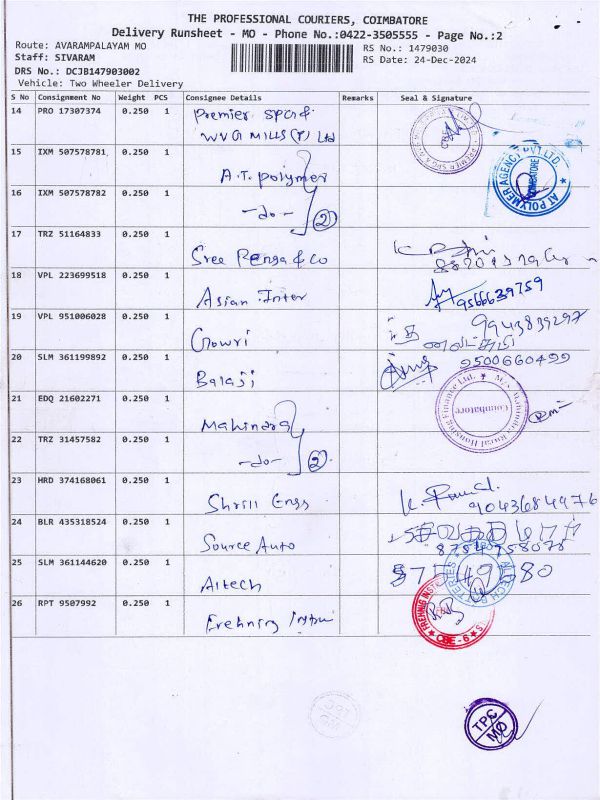 THE PROFESSIONAL COURIERS, COIMBATORE
Delivery Runsheet - MO - Phone No.:0422-3505555 - Page No.:2
Route: AVARAMPALAYAM MO
RS No.: 1479030
Staff: SIVARAM
RS Date: 24-Dec-2024
DRS No.: DCJB147903002
Vehicle: Two Wheeler Delivery
S No Consignment No Weight PCS Consignee Details Remarks Seal & Signature
14 PRO 17307374 0.250 1 Premier SPG &
WVG MILLS (P) Ltd
15 IXM 507578781 0.250 1 A.T. polymer
AT POLYMER AGENCY PVT LTD
COIMBATORE
16 IXM 507578782 0.250 1 -do- 2
17 TRZ 51164833 0.250 1 Sree Renga & Co
18 VPL 223699518 0.250 1 Asian Inter 9566639759
19 VPL 951006028 0.250 1 Gowri 9943839297
20 SLM 361199892 0.250 1 Balaji 9500660499
21 EDQ 21602271 0.250 1 Mahindra
M/s. Mahindra Rural Housing Finance Ltd.
Coimbatore
22 TRZ 31457582 0.250 1 -do- 2
23 HRD 374168061 0.250 1 Shrill Engs 9043684976
24 BLR 435318524 0.250 1 Source Auto 8754758078
25 SLM 361144620 0.250 1 Altech
ALTECH BATTERIES
26 RPT 9507992 0.250 1 Frehning
FREHNING
CBE - 6
TPC
MO